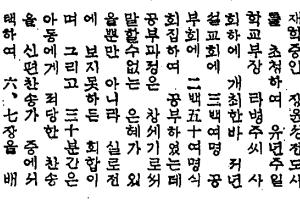 재학중인 장윤손전도사
를 초청하여 유년주일
학교부장 타병주씨 사
회하에 개최한바 거년
설교회에 三백여명 공
부회에 二백五十여명식
회집하여 공부하였는데
공부과정은 창세기로써
말할수없는 은혜가 있
을뿐만 아니라 실로전
에 보지못하든 회합이
며 그리고 三十분간은
아동에게 적당한 찬송
을 신편찬송가 중에서
택하여 六、七장을 배